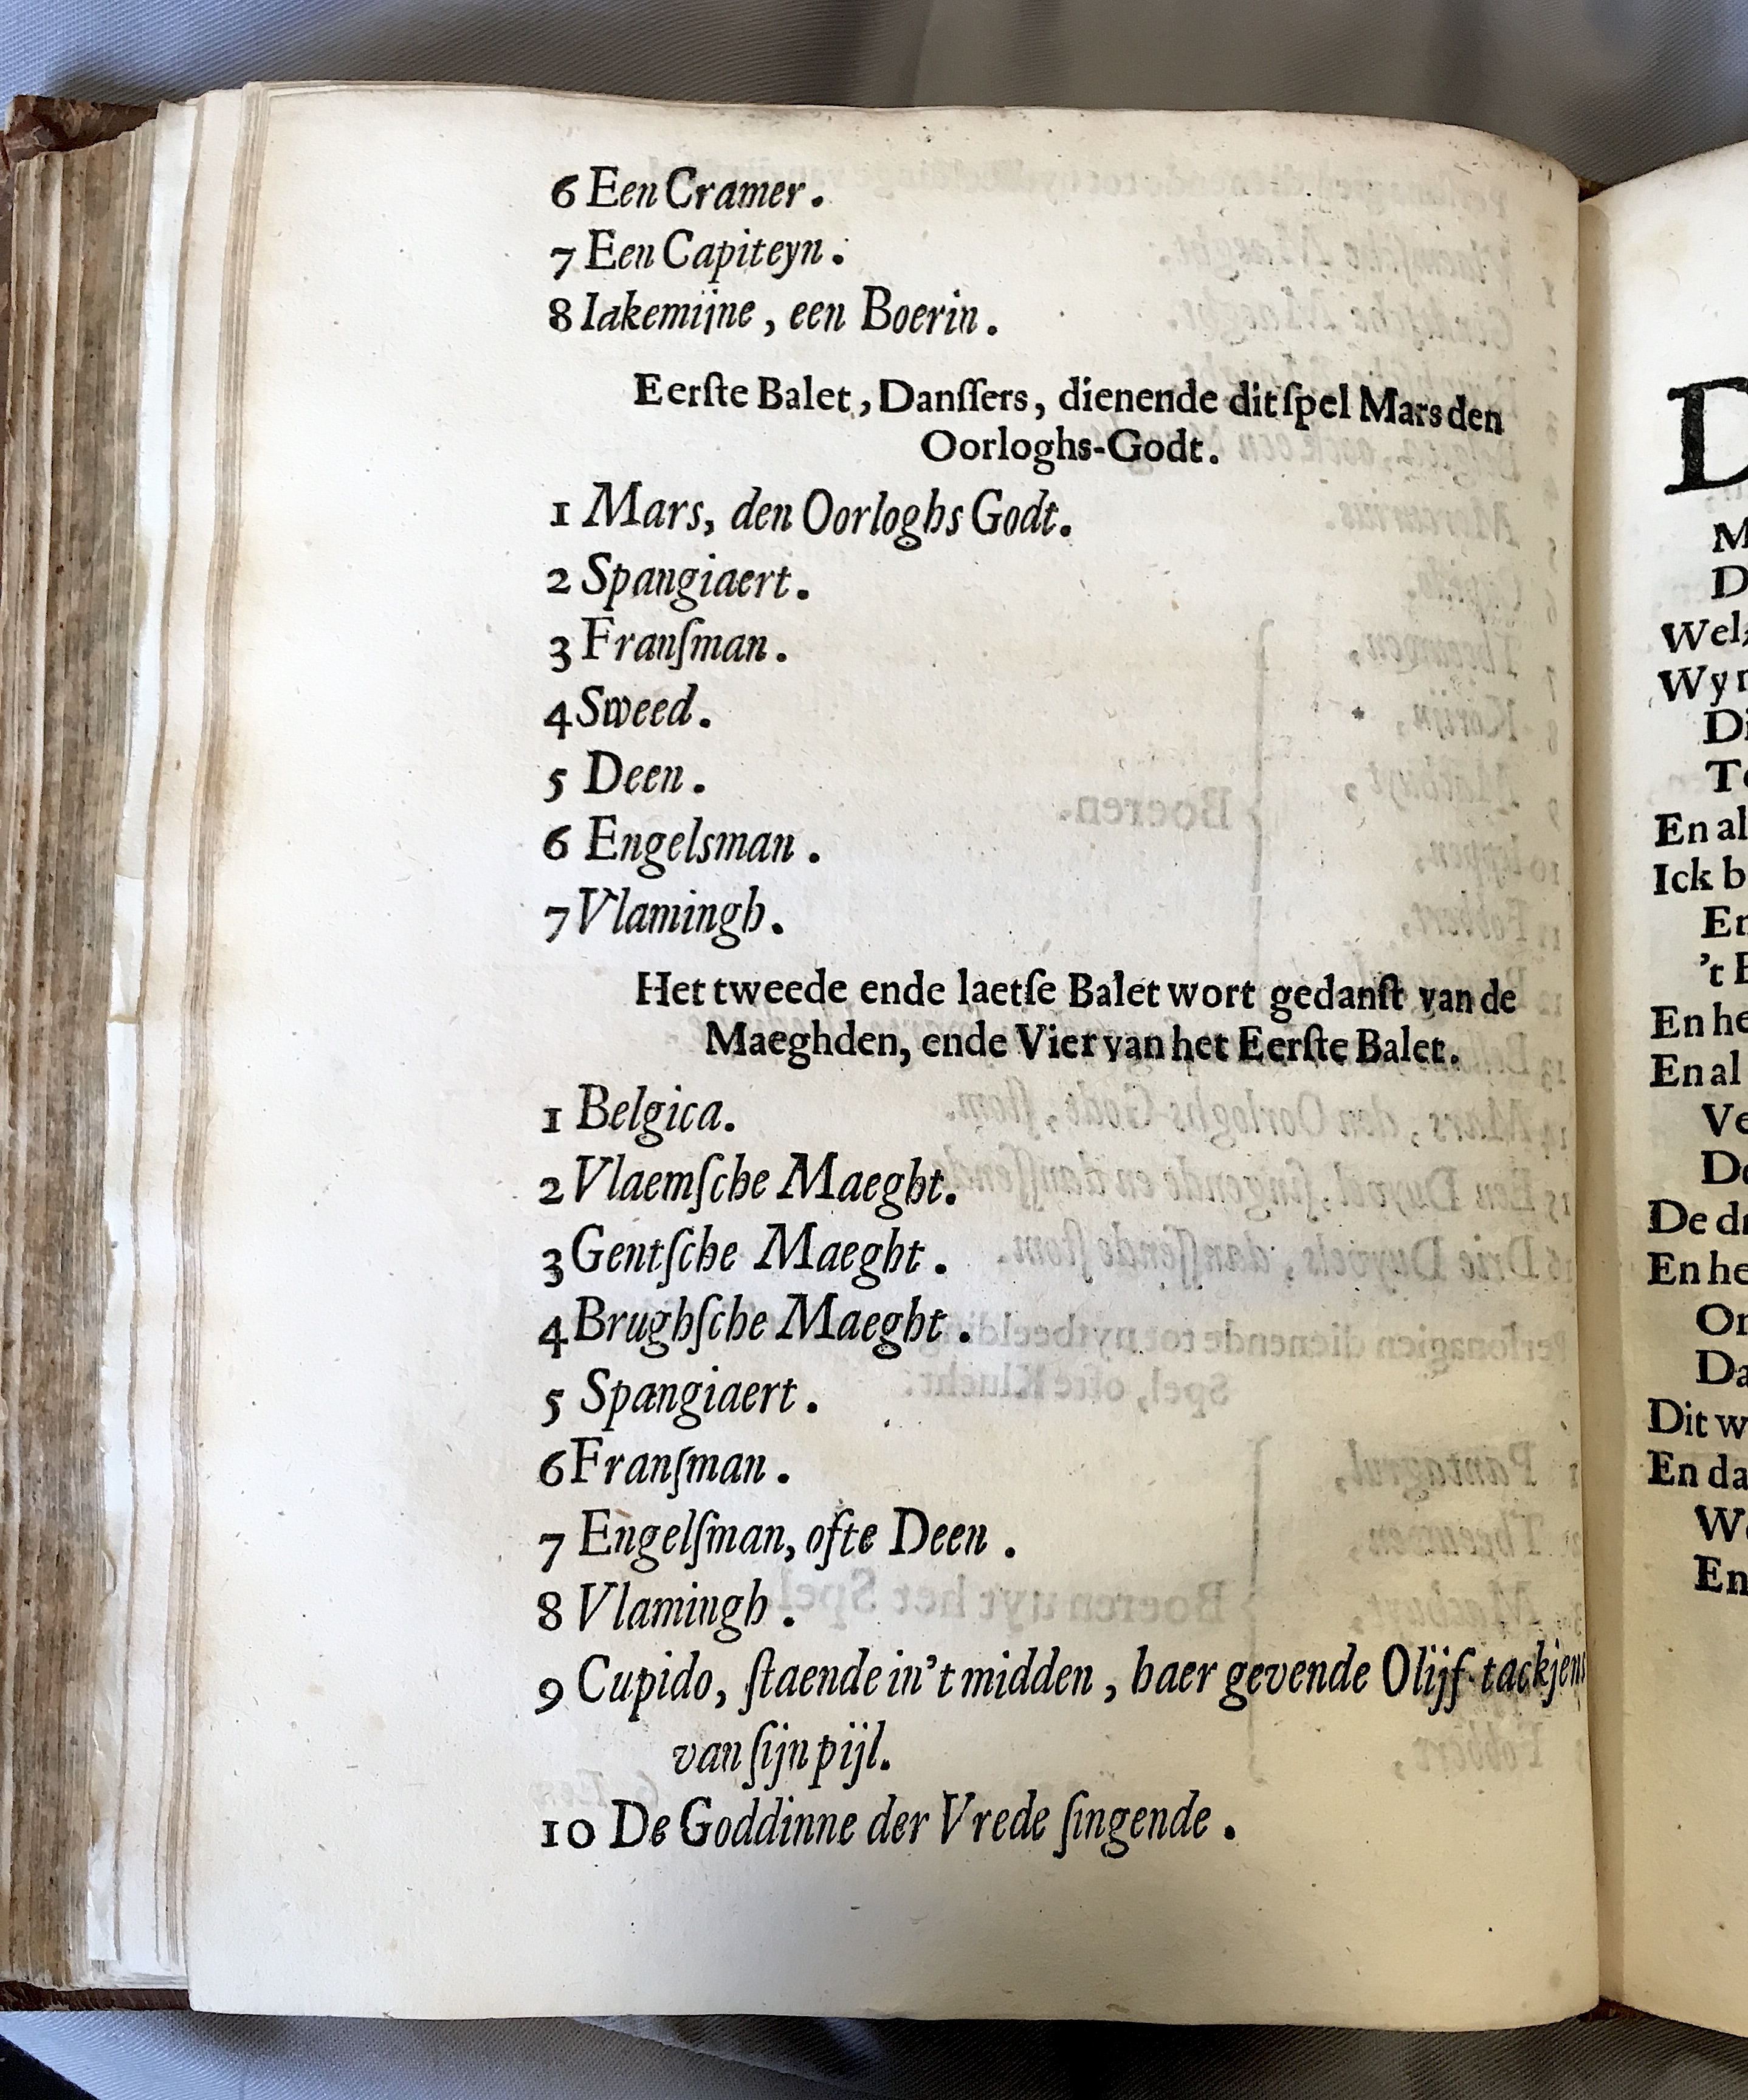 6 Een Cramer.
7 Een Capiteyn.
8 Iakemijne, een Boerin.
Eerſte Balet, Danſſers, dienende dit ſpel Mars den
Oorloghs-Godt.
1 Mars, den Oorloghs Godt.
2 Spangiaert.
3 Franſman.
4 Sweed.
5 Deen.
6 Engelsman.
7 Vlamingh.
Het tweede ende laetſe Balet wort gedanſt van de
Maeghden, ende Vier van het Eerſte Balet.
1 Belgica.
2 Vlaemſche Maeght.
3 Gentſche Maeght.
4 Brughſche Maeght.
5 Spangiaert.
6 Franſman.
7 Engelſman, ofte Deen.
8 Vlamingh.
9 Cupido, ſtaende in't midden, haer gevende Olijf-tackjens
van ſijn pijl.
10 De Goddinne der Vrede ſingende.